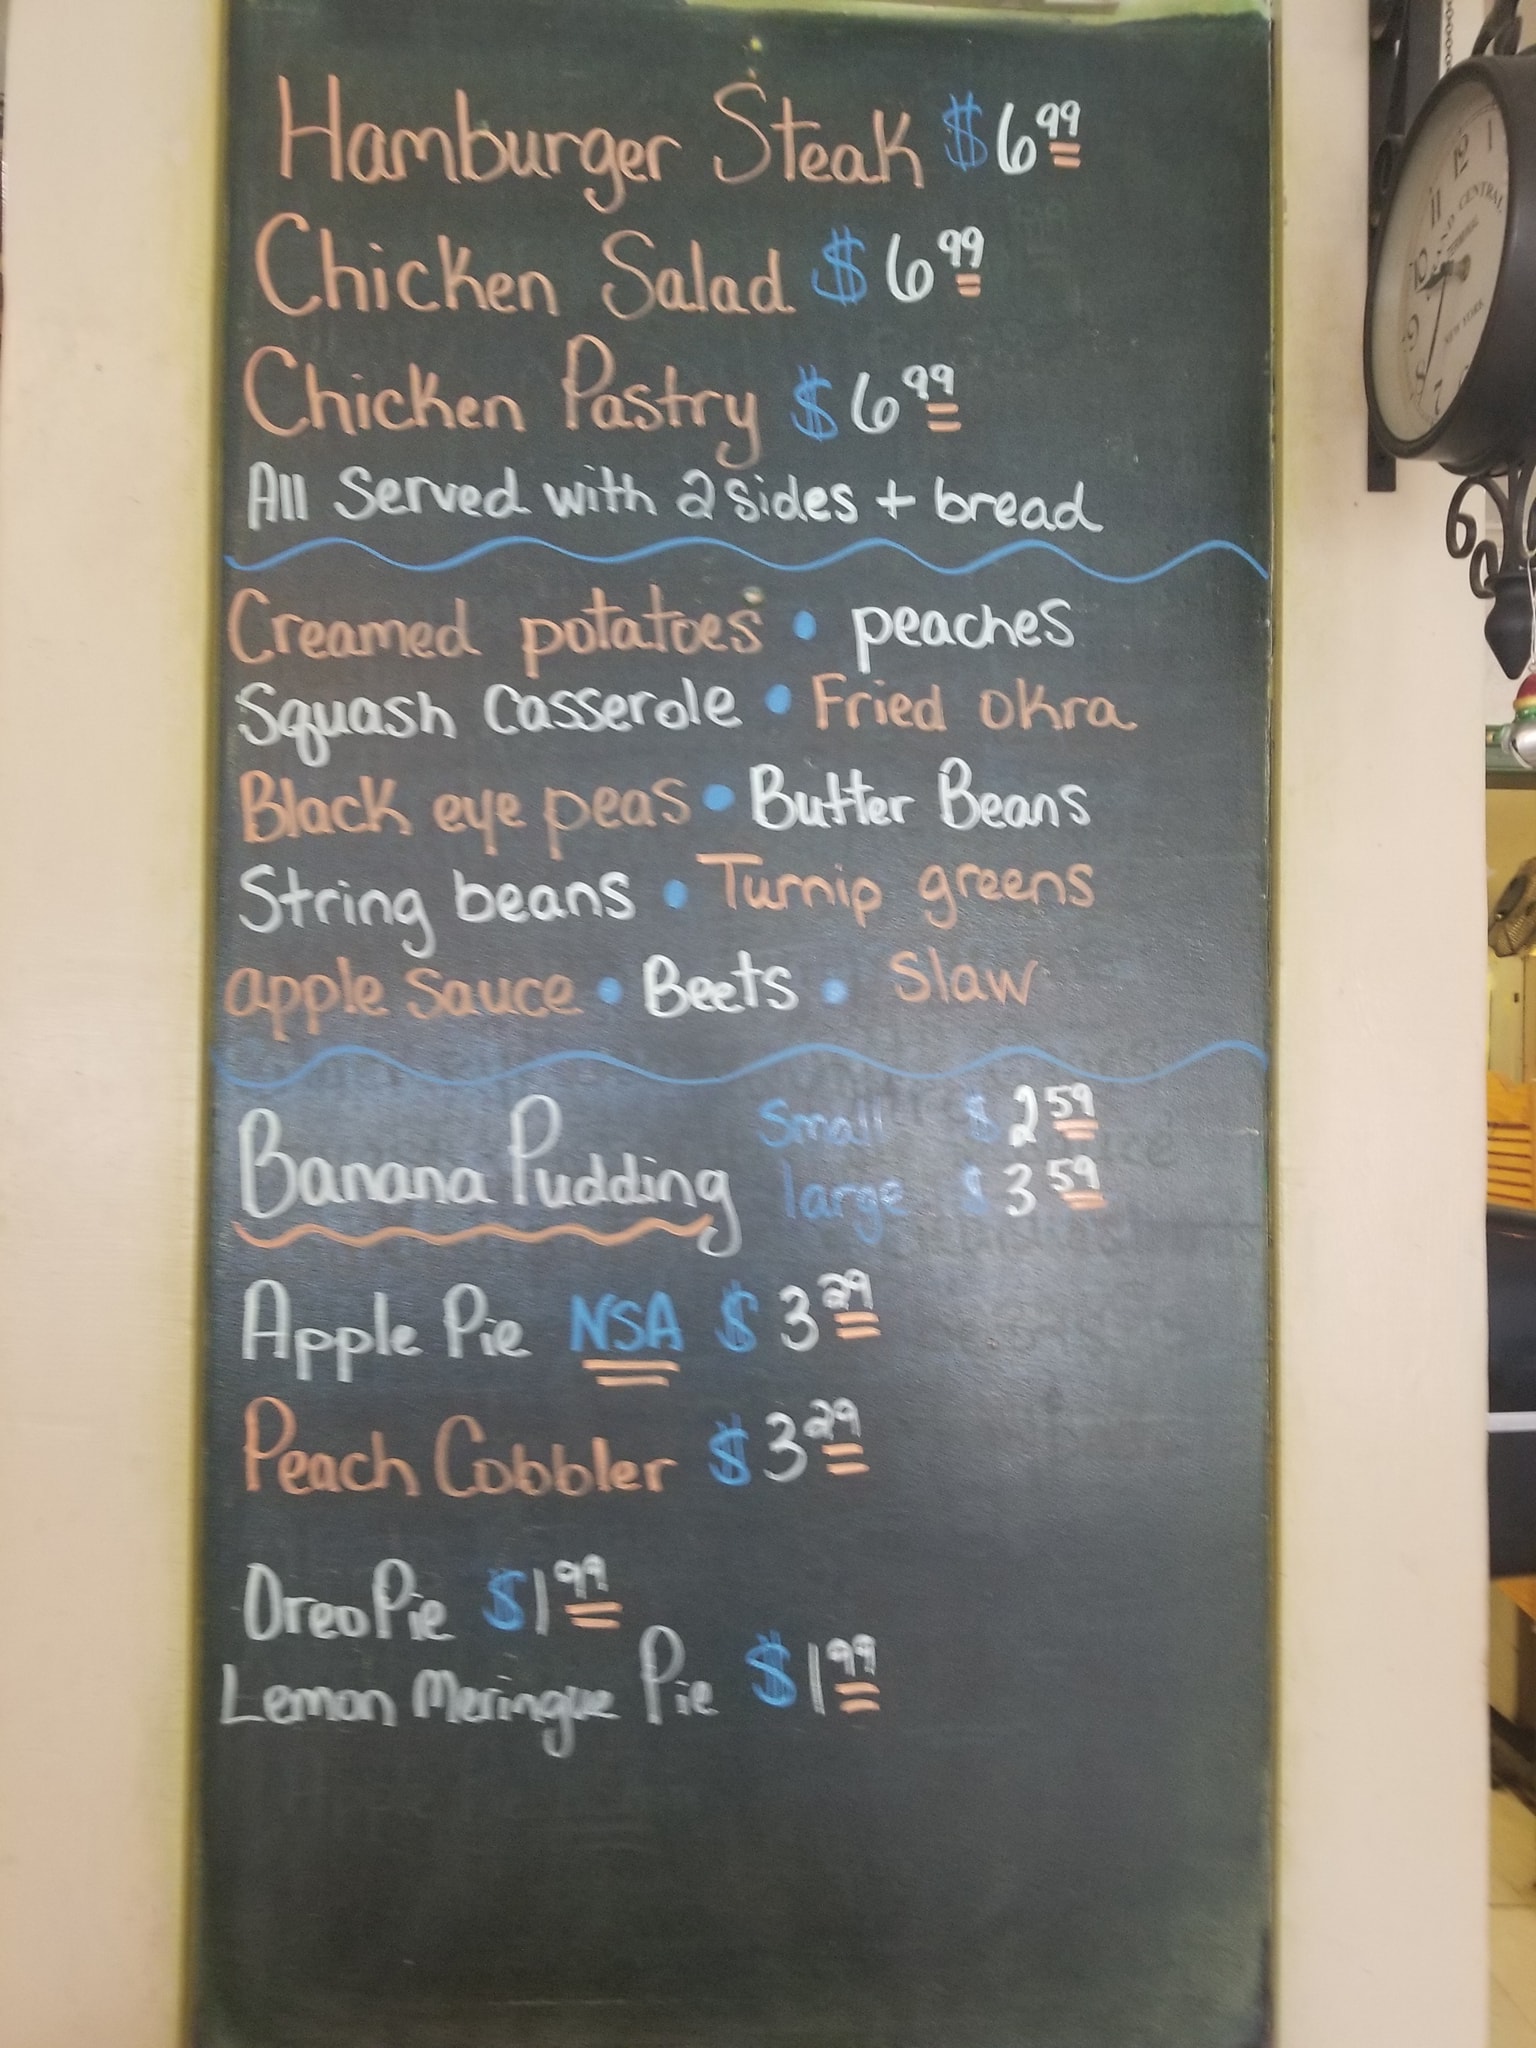 Hamburger Steak $6.99
Chicken Salad $6.99
Chicken Pastry $6.99
All Served with 2 sides + bread
Creamed potatoes • peaches
Squash Casserole • Fried okra
Black eye peas • Butter Beans
String beans • Turnip greens
apple sauce • Beets • Slaw
Banana Pudding small $2.59
large $3.59
Apple Pie NSA $3.29
Peach Cobbler $3.29
Oreo Pie $1.99
Lemon Meringue Pie $1.99
11 12 1
10 9 8 7
CENTRAL
TERMINAL
NEW YORK